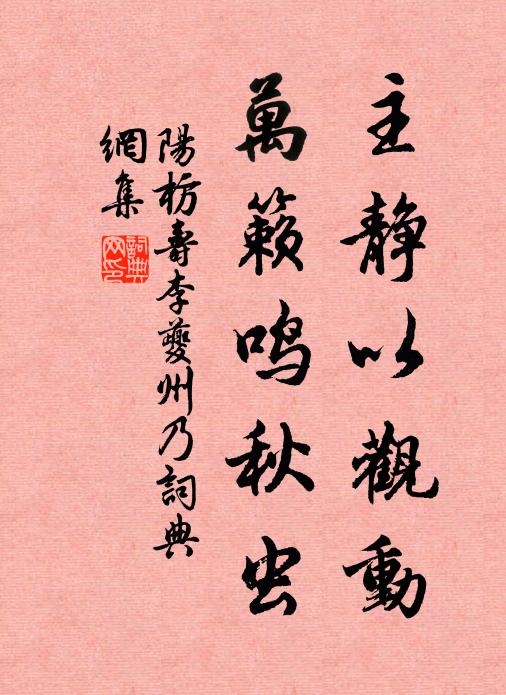 主靜以觀動
萬籟鳴秋虫
陽枋壽李夔州乃詞典
網集
詞典网印